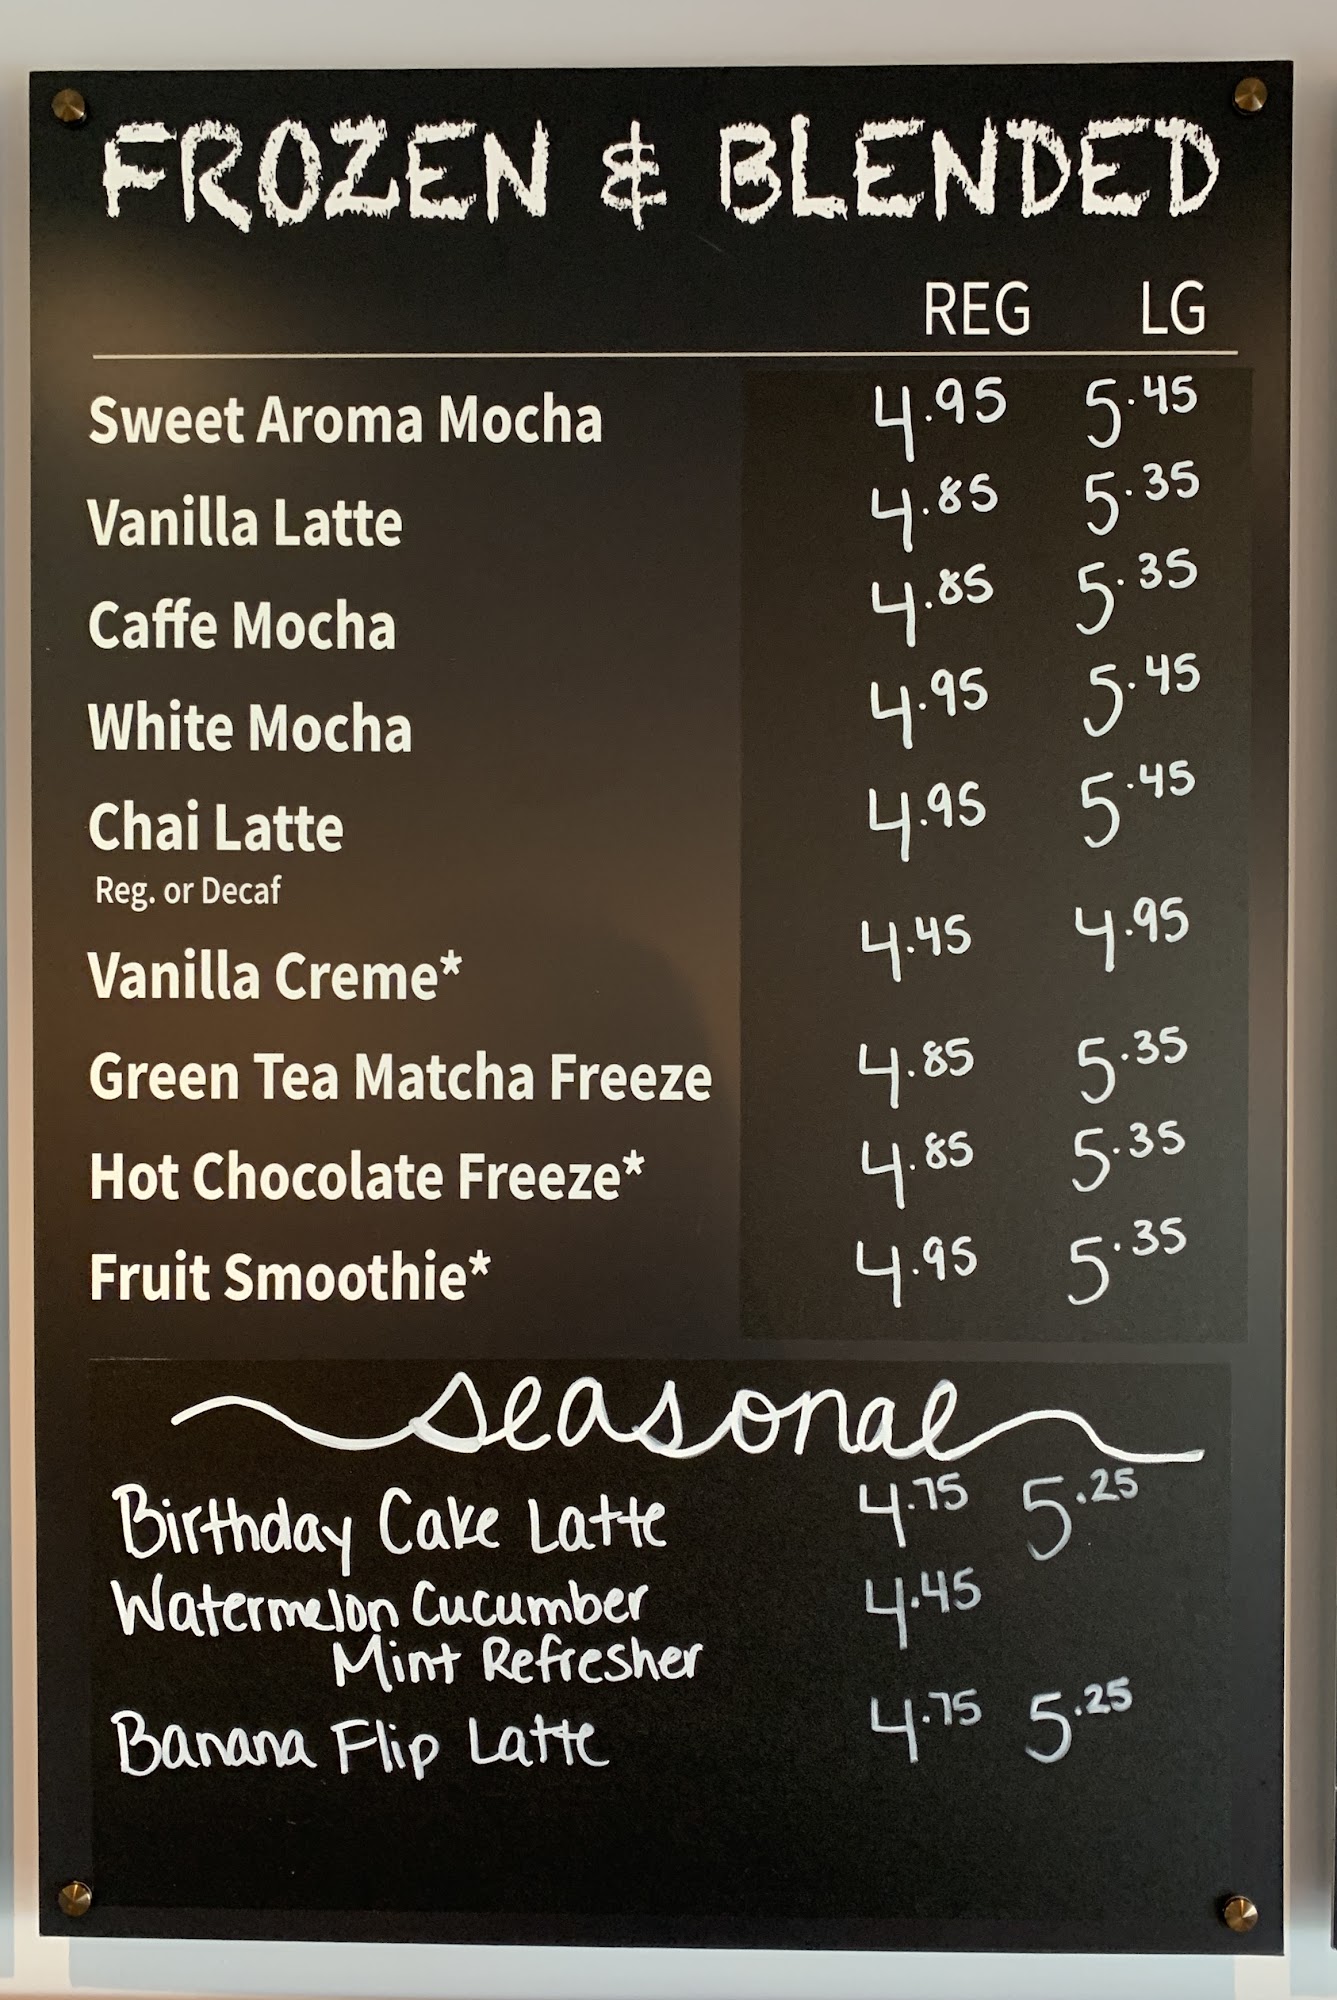 FROZEN & BLENDED
REG LG
Sweet Aroma Mocha 4.95 5.45
Vanilla Latte 4.85 5.35
Caffe Mocha 4.85 5.35
White Mocha 4.95 5.45
Chai Latte 4.95 5.45
Reg. or Decaf
Vanilla Creme* 4.45 4.95
Green Tea Matcha Freeze 4.85 5.35
Hot Chocolate Freeze* 4.85 5.35
Fruit Smoothie* 4.95 5.35
seasonal
Birthday Cake Latte 4.75 5.25
Watermelon Cucumber 4.45
Mint Refresher
Banana Flip Latte 4.75 5.25